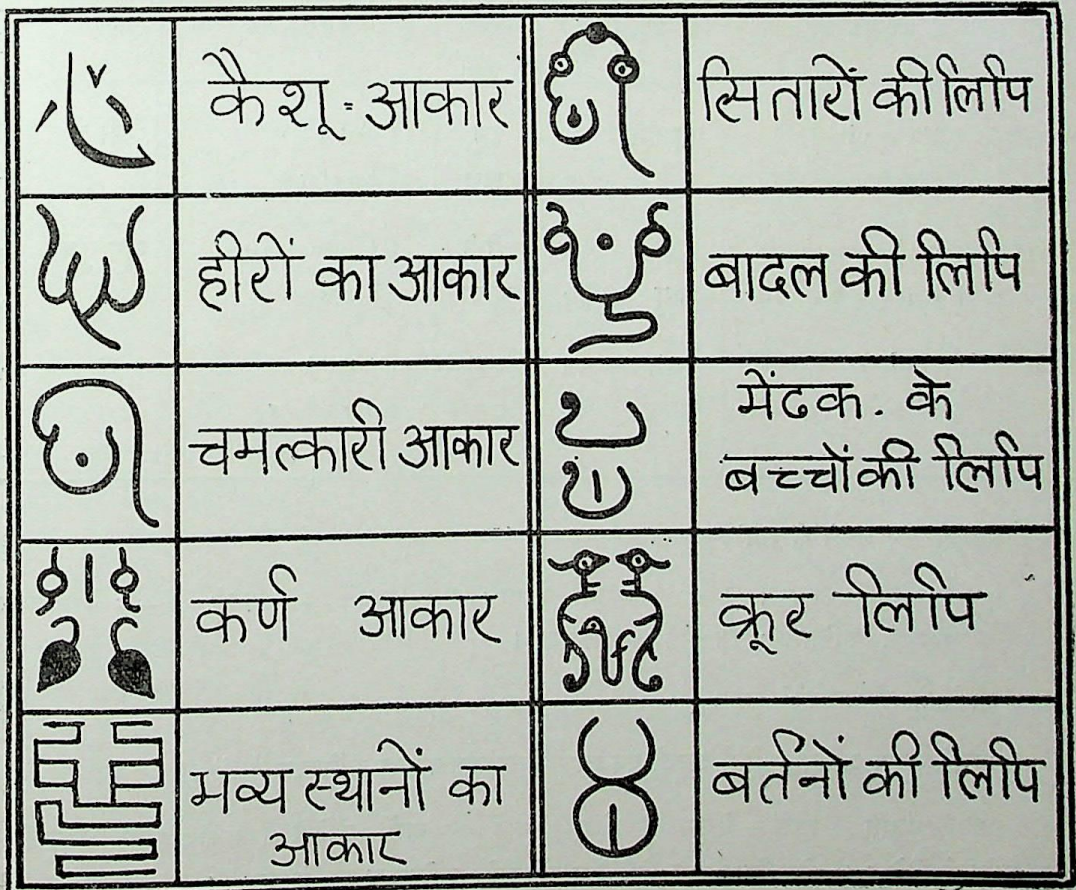 कैशू = आकार
सितारों की लिपि
हीरों का आकार
बादल की लिपि
चमत्कारी आकार
मेंढक . के
बच्चों की लिपि
कर्ण आकार
क्रूर लिपि
मव्य स्थानों का
आकार
बर्तनों की लिपि